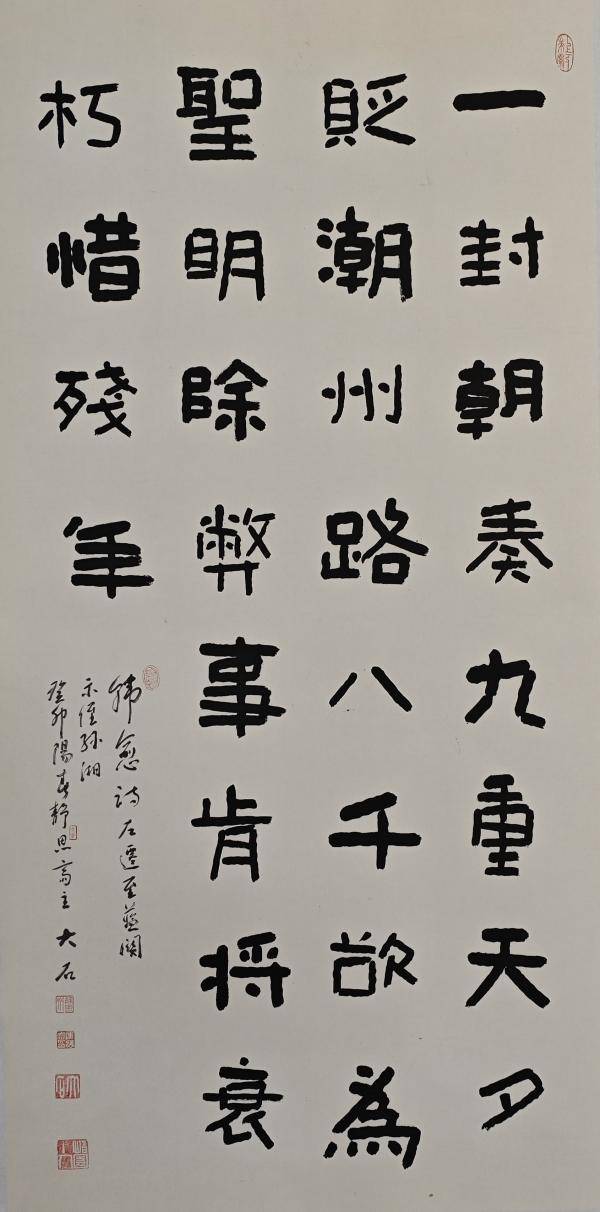 一封朝奏九重天夕
貶潮州路八千欲為
聖明除弊事肯將衰
朽惜殘年
韓愈詩左遷至藍關
示侄孫湘
癸卯陽春靜思齋主大石